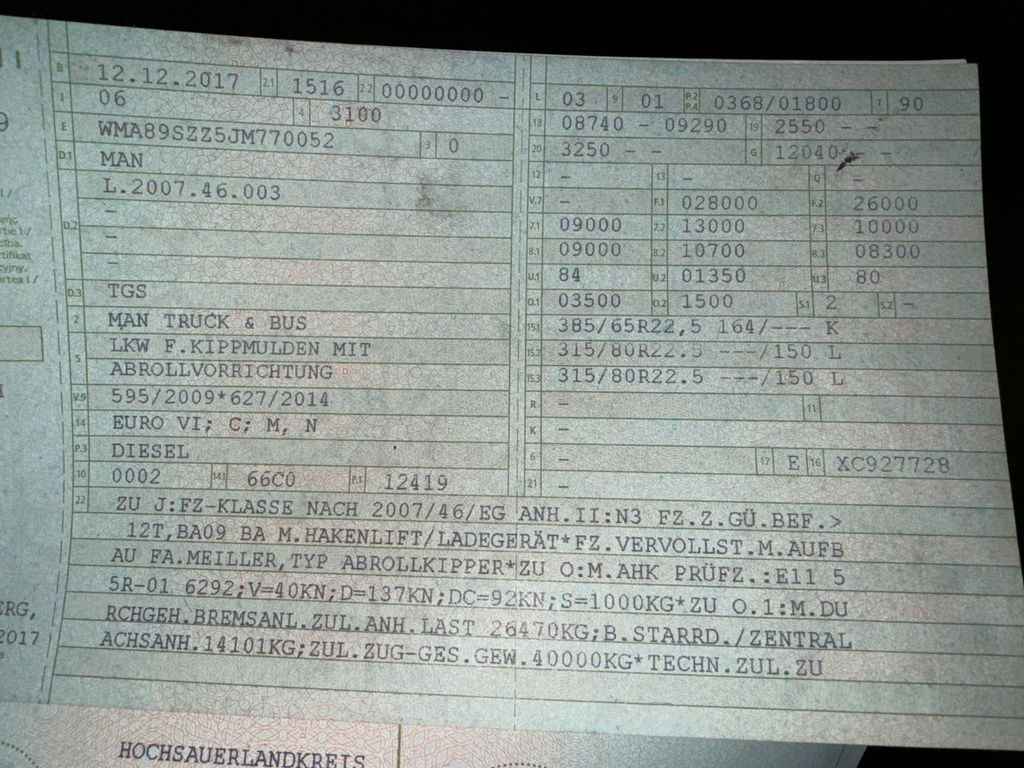 B 12.12.2017 2.1 1516 2.2 00000000 -
J 06 4 3100
E WMA89SZZ5JM770052 3 0
D.1 MAN
L.2007.46.003
-
D.2 -
-
D.3 TGS
2 MAN TRUCK & BUS
5 LKW F.KIPPMULDEN MIT
ABROLLVORRICHTUNG
V.9 595/2009*627/2014
14 EURO VI; C; M, N
P.3 DIESEL
10 0002 14.1 66C0 P.1 12419
L 03 9 01 P.2 P.4 0368/01800 T 90
18 08740 - 09290 19 2550 - -
20 3250 - - G 12040 - -
12 - 13 - Q -
V.7 - F.1 028000 F.2 26000
7.1 09000 7.2 13000 7.3 10000
8.1 09000 8.2 10700 8.3 08300
U.1 84 U.2 01350 U.3 80
O.1 03500 O.2 1500 S.1 2 S.2 -
15.1 385/65R22,5 164/--- K
15.2 315/80R22.5 ---/150 L
15.3 315/80R22.5 ---/150 L
R - 11
K -
6 - 17 E 16 XC927728
21 -
22 ZU J:FZ-KLASSE NACH 2007/46/EG ANH.II:N3 FZ.Z.GÜ.BEF.>
12T,BA09 BA M.HAKENLIFT/LADEGERÄT*FZ.VERVOLLST.M.AUFB
AU FA.MEILLER,TYP ABROLLKIPPER*ZU O:M.AHK PRÜFZ.:E11 5
5R-01 6292;V=40KN;D=137KN;DC=92KN;S=1000KG*ZU O.1:M.DU
RCHGEH.BREMSANL.ZUL.ANH.LAST 26470KG;B.STARRD./ZENTRAL
ACHSANH.14101KG;ZUL.ZUG-GES.GEW.40000KG*TECHN.ZUL.ZU
ERG,
2017
HOCHSAUERLANDKREIS